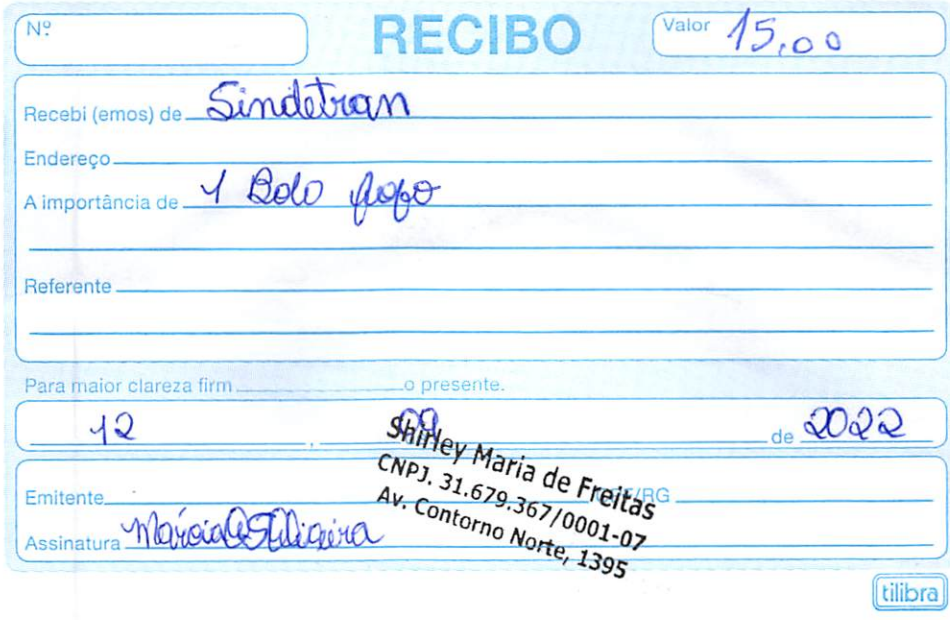 Nº RECIBO Valor 15,00
Recebi (emos) de Sindetran
Endereço
A importância de 1 Bolo fofo
Referente
Para maior clareza firm o presente.
12 , 09 de 2022
Shirley Maria de Freitas
CNPJ. 31.679.367/0001-07
Av. Contorno Norte, 1395
Emitente /RG
Assinatura Márcia
tilibra